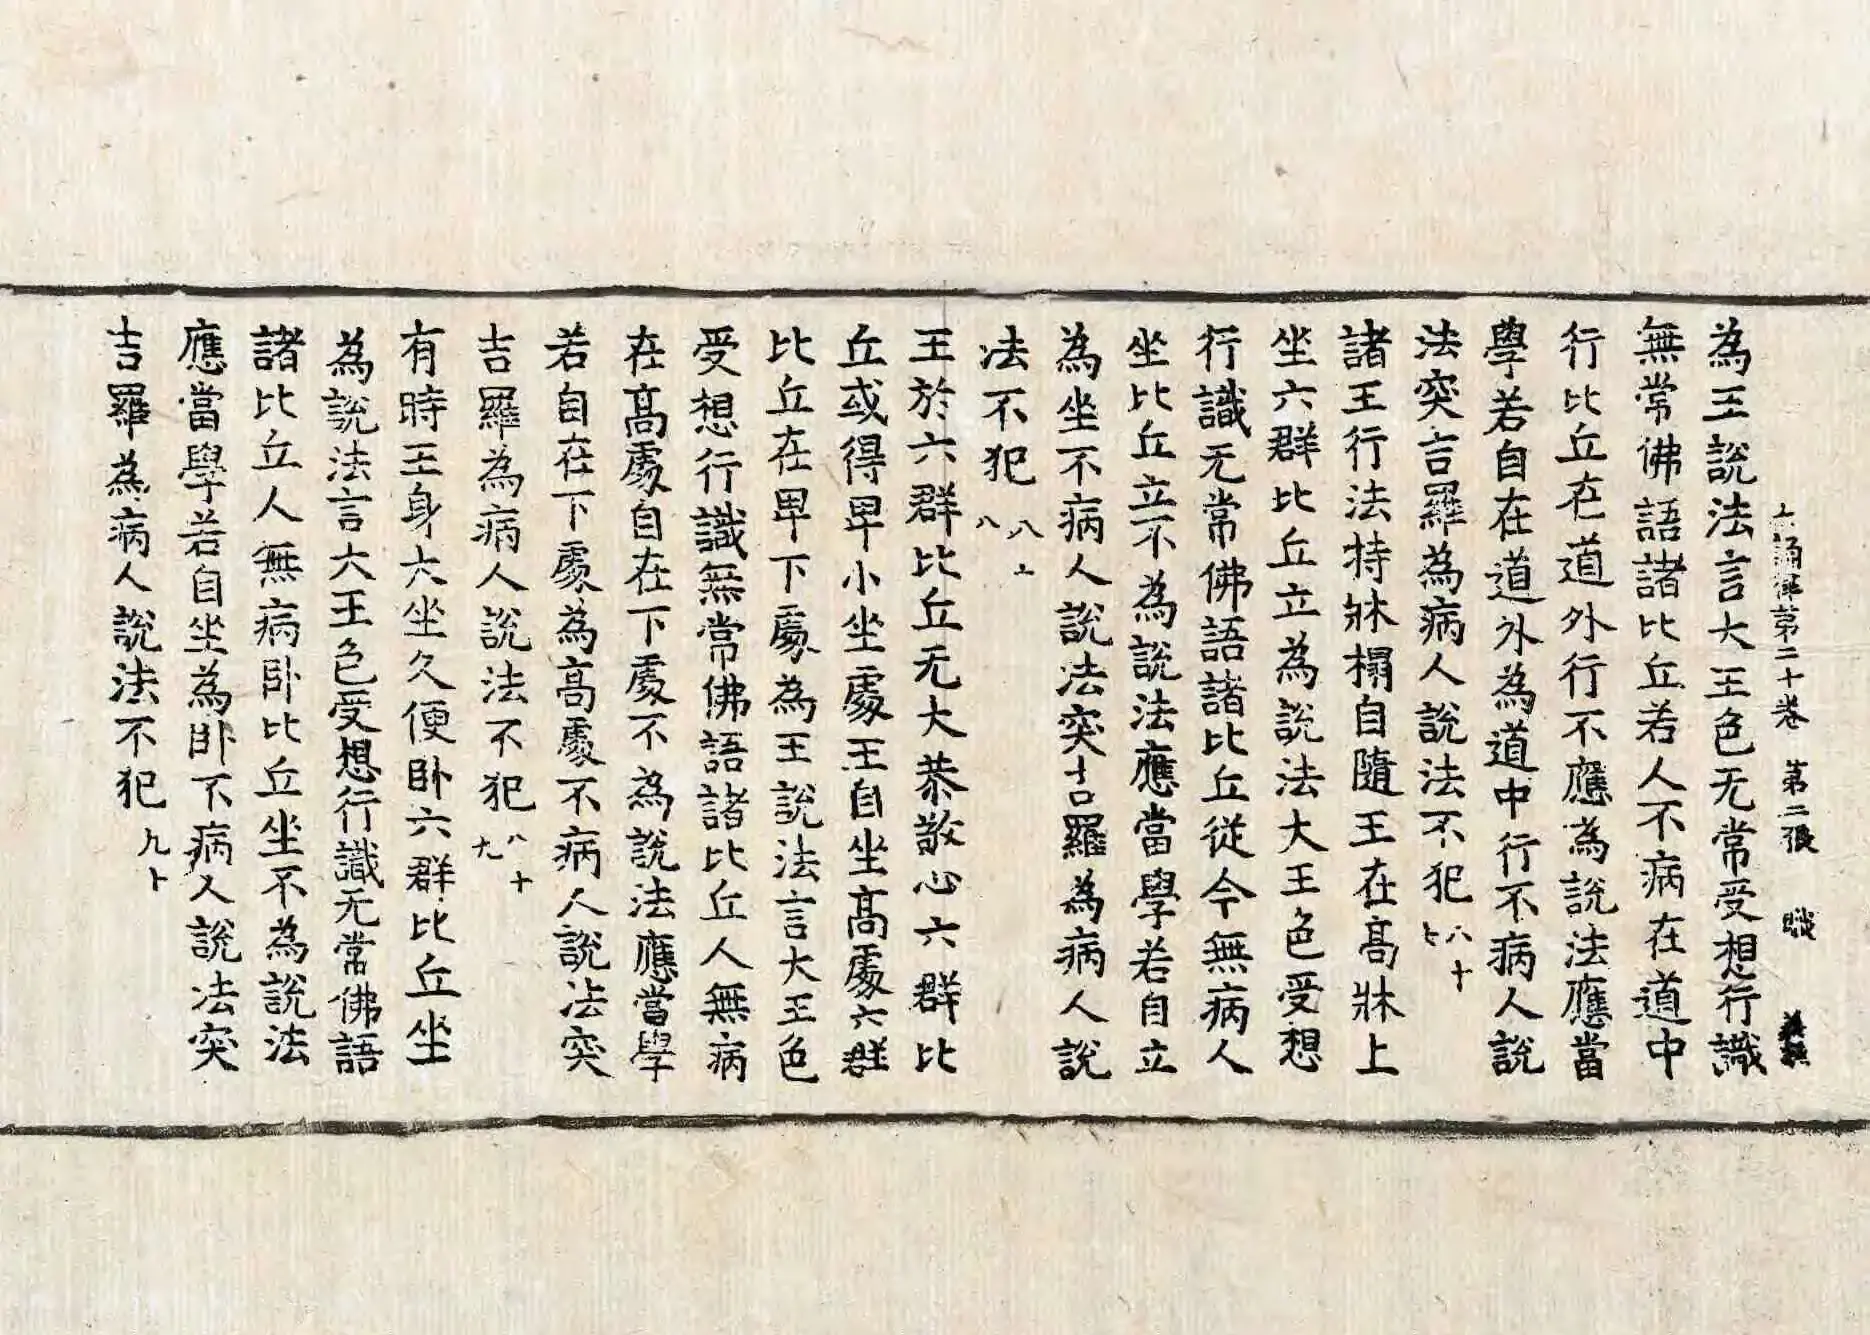 十誦律第二十卷 第二張 職
為王說法言大王色无常受想行識
無常佛語諸比丘若人不病在道中
行比丘在道外行不應為說法應當
學若自在道外為道中行不病人說
法突吉羅為病人說法不犯 八十七
諸王行法持牀榻自隨王在高牀上
坐六群比丘立為說法大王色受想
行識无常佛語諸比丘從今無病人
坐比丘立不為說法應當學若自立
為坐不病人說法突吉羅為病人說
法不犯 八十八
王於六群比丘无大恭敬心六群比
丘或得卑小坐處王自坐高處六群
比丘在卑下處為王說法言大王色
受想行識無常佛語諸比丘人無病
在高處自在下處不為說法應當學
若自在下處為高處不病人說法突
吉羅為病人說法不犯 八十九
有時王身大坐久便卧六群比丘坐
為說法言大王色受想行識无常佛語
諸比丘人無病卧比丘坐不為說法
應當學若自坐為卧不病人說法突
吉羅為病人說法不犯 九十